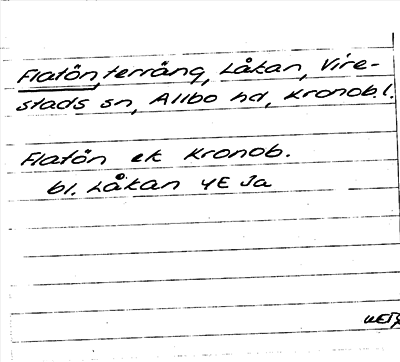 Flatön, terräng, Låkan, Vire-
stads sn, Allbo hd, Kronob.l.
Flatön ek Kronob.
bl. Låkan 4E Ja